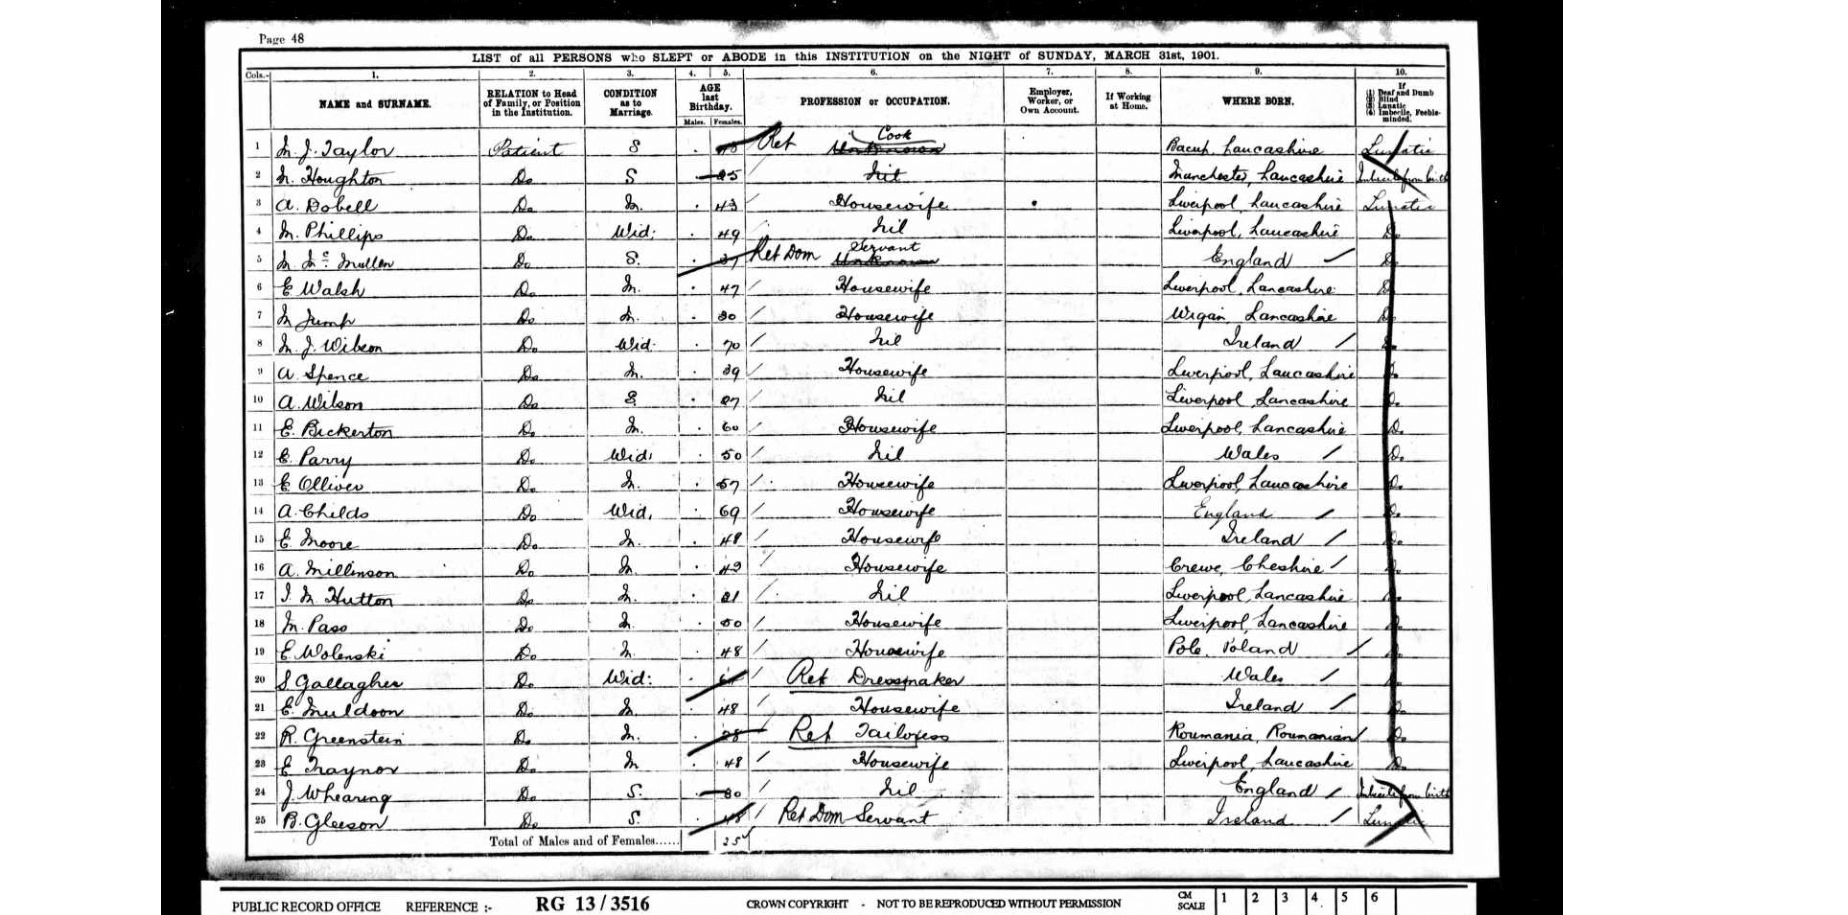 Page 48
LIST of all PERSONS who SLEPT or ABODE in this INSTITUTION on the NIGHT of SUNDAY, MARCH 31st, 1901.
Cols.- 1. 2. 3. 4. 5. 6. 7. 8. 9. 10.
NAME and SURNAME. RELATION to Head of Family, or Position in the Institution. CONDITION as to Marriage. AGE last Birthday. Males. Females. PROFESSION or OCCUPATION. Employer, Worker, or Own Account. If Working at Home. WHERE BORN. If (1) Deaf and Dumb (2) Blind (3) Lunatic (4) Imbecile, Feeble-minded.
1 M. J. Taylor Patient S Ret Cook Unknown Bacup, Lancashire Lunatic
2 M. Houghton Do S Nil Manchester, Lancashire Imbecile from birth
3 A. Dobell Do M. 43 Housewife Liverpool, Lancashire Lunatic
4 M. Phillips Do Wid: 49 Nil Liverpool, Lancashire Do
5 M. Mc Mullen Do S. Ret Dom Servant Unknown England Do
6 E. Walsh Do M. 47 Housewife Liverpool, Lancashire Do
7 M Jump Do M. 30 Housewife Wigan, Lancashire Do
8 M. J. Wilson Do Wid. 70 Nil Ireland Do
9 A. Spence Do M. 39 Housewife Liverpool, Lancashire Do
10 A. Wilson Do S Nil Liverpool, Lancashire Do
11 E. Bickerton Do M. 60 Housewife Liverpool, Lancashire Do
12 E. Parry Do Wid: 50 Nil Wales Do
13 E Olliver Do M. 57 Housewife Liverpool, Lancashire Do
14 A. Childs Do Wid. 69 Housewife England Do
15 E. Moore Do M. 48 Housewife Ireland Do
16 A. Millinson Do M. Housewife Crewe, Cheshire Do
17 I. M Hutton Do M. Nil Liverpool, Lancashire Do
18 M. Pass Do M. 50 Housewife Liverpool, Lancashire Do
19 E. Wolenski Do M. 48 Housewife Pole. Poland Do
20 S. Gallagher Do Wid: Ret Dressmaker Wales Do
21 E. Muldoon Do M 48 Housewife Ireland Do
22 R. Greenstein Do M. 28 Ret Tailoress Roumania, Roumanian Do
23 E Traynor Do M 48 Housewife Liverpool, Lancashire Do
24 J. Whearing Do S. 30 Nil England Imbecile from birth
25 B. Gleeson Do S. 48 Ret Dom Servant Ireland Lunatic
Total of Males and of Females...... 25
PUBLIC RECORD OFFICE REFERENCE :- RG 13 / 3516 CROWN COPYRIGHT - NOT TO BE REPRODUCED WITHOUT PERMISSION CM SCALE 1 2 3 4 5 6